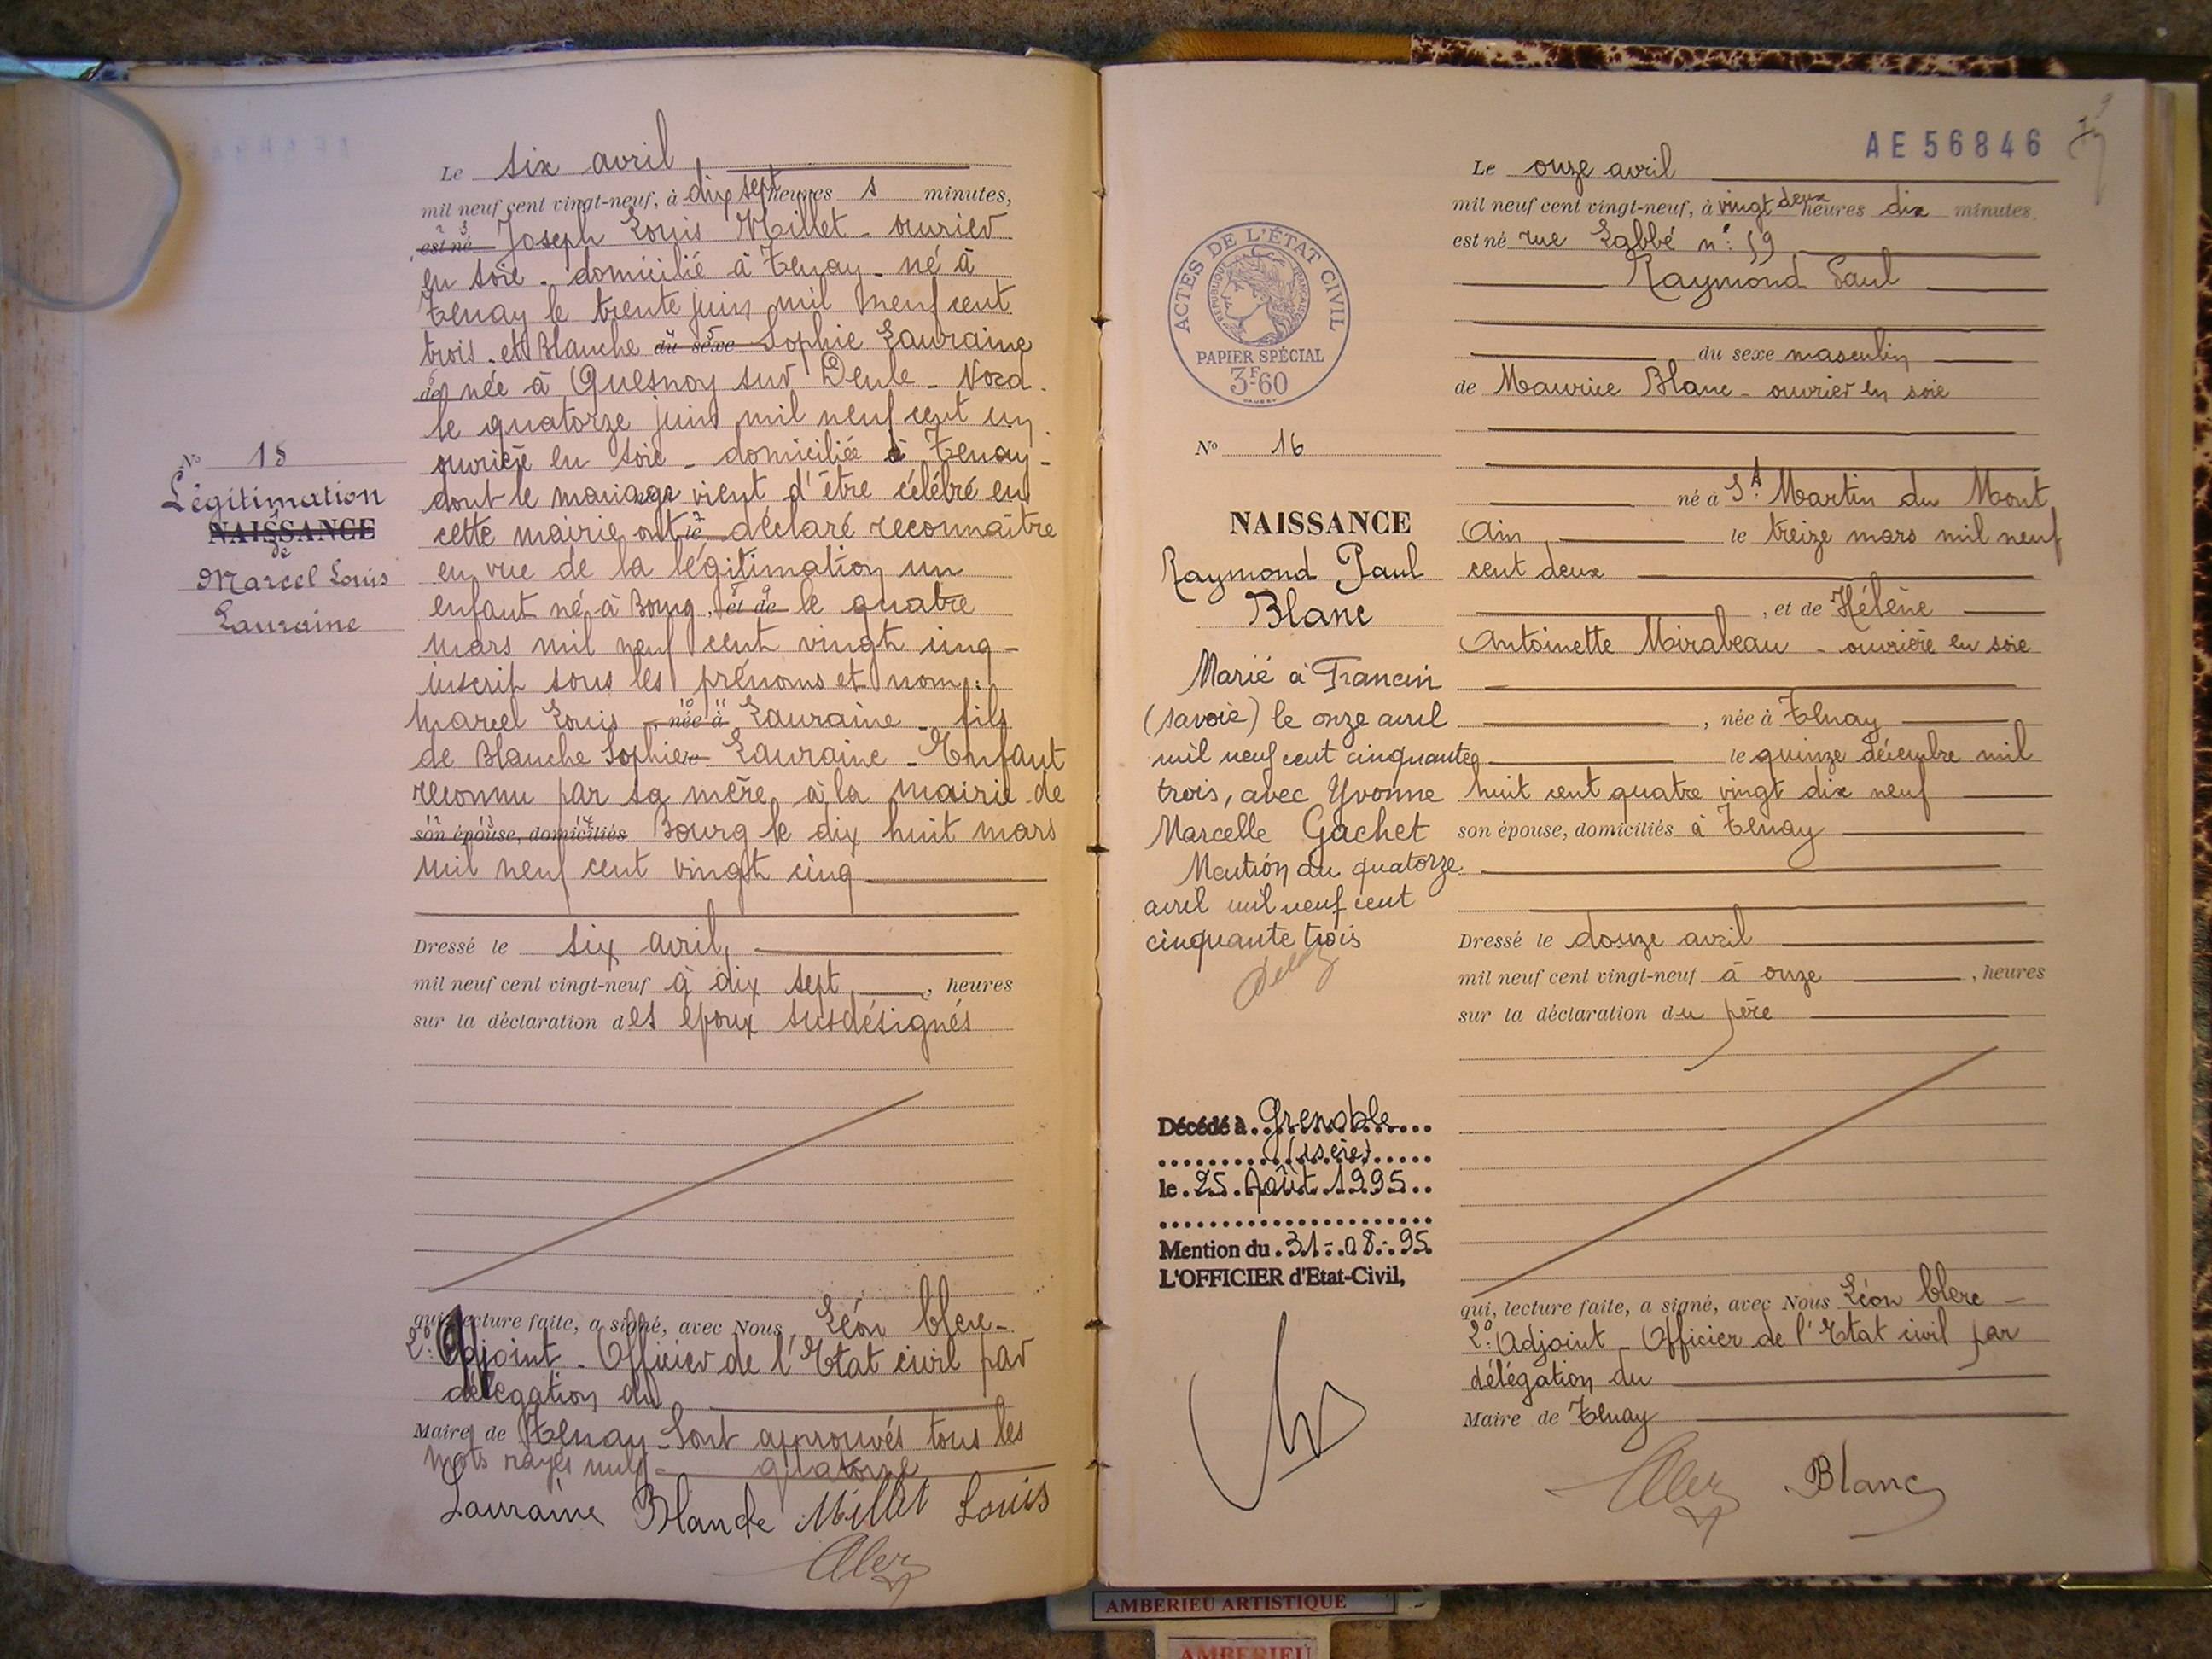 Le six avril
mil neuf cent vingt-neuf, à dix sept heures minutes,
est né Joseph Louis Millet - ouvrier
en soie - domicilié à Tenay - né à
Tenay le trente juin mil neuf cent
trois - et Blanche du sexe Sophie Lauraine
de née à Quesnoy sur Deule - Nord -
le quatorze juin mil neuf cent un
ouvrière en soie - domiciliée à Tenay -
dont le mariage vient d'être célébré en
cette mairie ont le déclaré reconnaître
en vue de la légitimation un
enfant né à Bourg, et de le quatre
mars mil neuf cent vingt cinq -
inscrit sous les prénoms et nom :
Marcel Louis , née à Lauraine - fils
de Blanche Sophie le Lauraine - Enfant
reconnu par sa mère à la mairie de
son épouse, domiciliés Bourg le dix huit mars
mil neuf cent vingt cinq
Dressé le six avril,
mil neuf cent vingt-neuf à dix sept , heures
sur la déclaration des époux susdésignés
qui, lecture faite, a signé, avec Nous, Léon Clerc -
2e: Adjoint - Officier de l'Etat civil par
délégation du
Maire de Tenay - Sont approuvés tous les
mots rayés nuls - quatorze
Lauraine Blanche Millet Louis
Clerc
No 15
Légitimation
NAISSANCE
de
Marcel Louis
Lauraine
AE 56846
ACTES DE L'ÉTAT CIVIL
RÉPUBLIQUE FRANÇAISE
PAPIER SPÉCIAL
3F60
No 16
NAISSANCE
Raymond Paul
Blanc
Marié à Francin
(Savoie) le onze avril
mil neuf cent cinquante
trois, avec Yvonne
Marcelle Gachet
Mention du quatorze
avril mil neuf cent
cinquante trois
Décédé à Grenoble
(Isère)
le 25 Août 1995
Mention du 31-08-95
L'OFFICIER d'Etat-Civil,
Le onze avril
mil neuf cent vingt-neuf, à vingt deux heures dix minutes
est né rue Labbé n°: 19
Raymond Paul
du sexe masculin
de Maurice Blanc - ouvrier en soie
né à St Martin du Mont
Ain le treize mars mil neuf
cent deux
, et de Hélène
Antoinette Mirabeau - ouvrière en soie
, née à Tenay
le quinze décembre mil
huit cent quatre vingt dix neuf
son épouse, domiciliés à Tenay
Dressé le douze avril
mil neuf cent vingt-neuf à onze , heures
sur la déclaration du père
qui, lecture faite, a signé, avec Nous Léon Clerc -
2e: Adjoint - Officier de l'Etat civil par
délégation du
Maire de Tenay
Clerc Blanc
AMBERIEU ARTISTIQUE
AMBERIEU